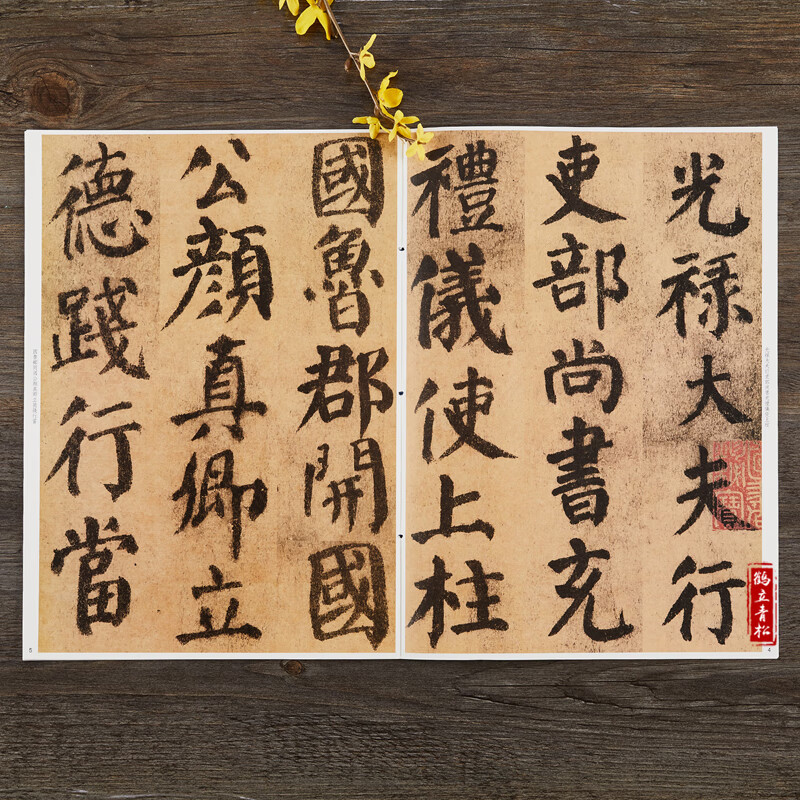 光禄大夫行
吏部尚書充
禮儀使上柱
國魯郡開國
公顔真卿立
德踐行當
鹤立青松
4
5